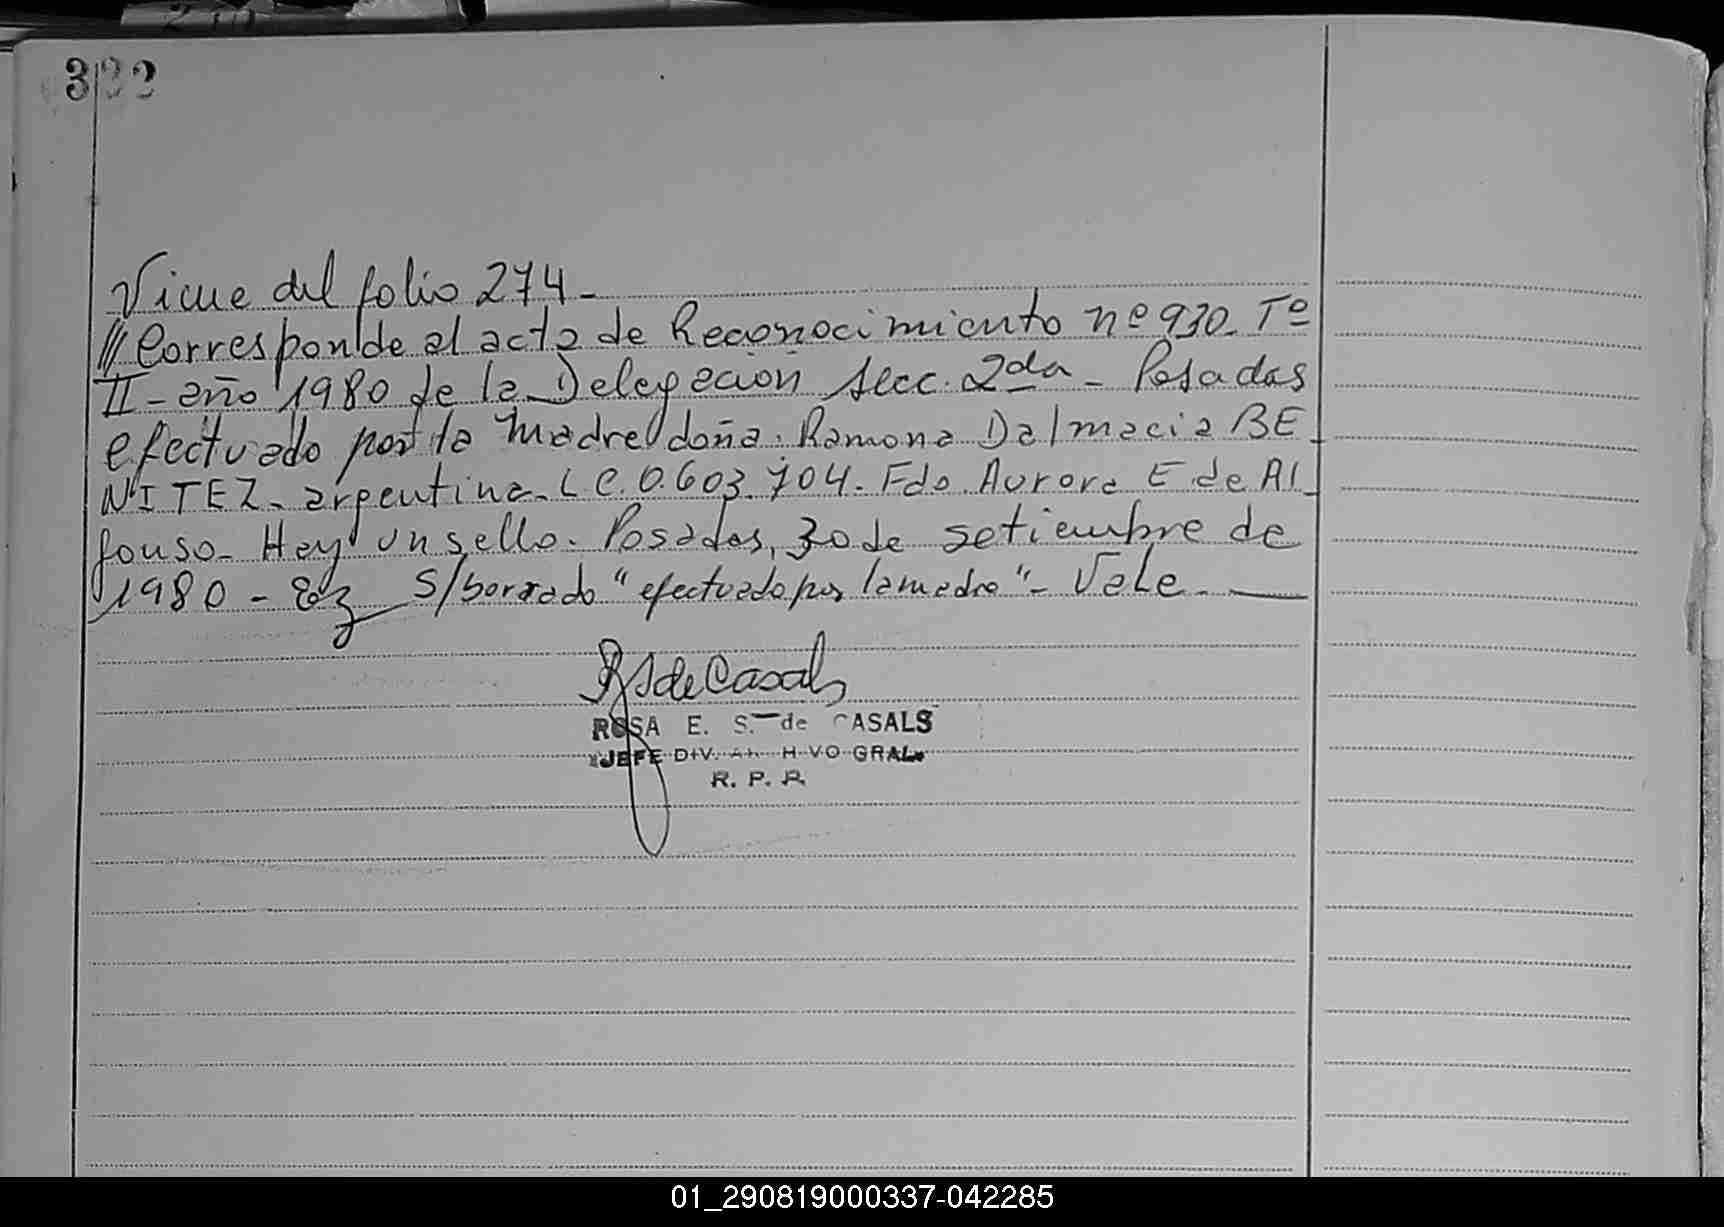 322
Viene del folio 274-
/// Corresponde al acta de Reconocimiento nº 930. Tº
II - año 1980 de la Delegación Secc. 2da - Posadas
efectuado por la Madre doña Ramona Dalmacia BE_
NITEZ - argentina - L C. 0.603.704. Fdo. Aurora E de Al_
fonso - Hay un sello. Posadas, 30 de setiembre de
1980 - S/borrado "efectuado por la madre" - Vale. —
RS de Casals
ROSA E. S. de CASALS
JEFE DIV. ARCHIVO GRAL.
R. P. P.
01_290819000337-042285